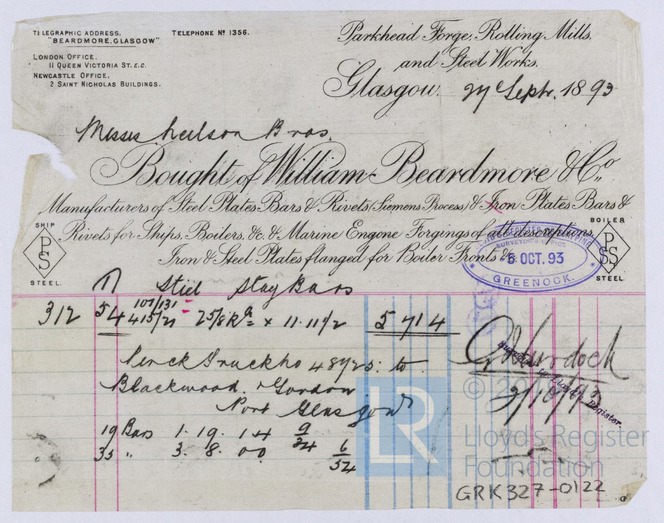 TELEGRAPHIC ADDRESS,
"BEARDMORE, GLASGOW"
TELEPHONE Nº 1356.
LONDON OFFICE,
11 QUEEN VICTORIA ST. E.C.
NEWCASTLE OFFICE,
2 SAINT NICHOLAS BUILDINGS.
Parkhead Forge, Rolling Mills,
and Steel Works.
Glasgow. 27 Septr. 1893
Messrs Neilson Bros.
Bought of William Beardmore & Co.
Manufacturers of Steel Plates Bars & Rivets (Siemens Process) & Iron Plates Bars &
Rivets for Ships, Boilers, &c. & Marine Engine Forgings of all descriptions,
Iron & Steel Plates flanged for Boiler Fronts &c.
SHIP
PSS
STEEL.
BOILER
PSS
STEEL.
SURVEYOR'S OFFICE
5 OCT. 93
GREENOCK.
Steel Stay Bars
312 54 107/131
415/21 25/8 Rd x 11.11 1/2 5714
Truck No 48723 to
Blackwood & Gordon
Port Glasgow
19 Bars 1. 19. 14 9/34
35 " 3. 8. 00 6/54
Murdoch
3/10/93
LR
©
Lloyd's Register
Foundation
GRK327-0122